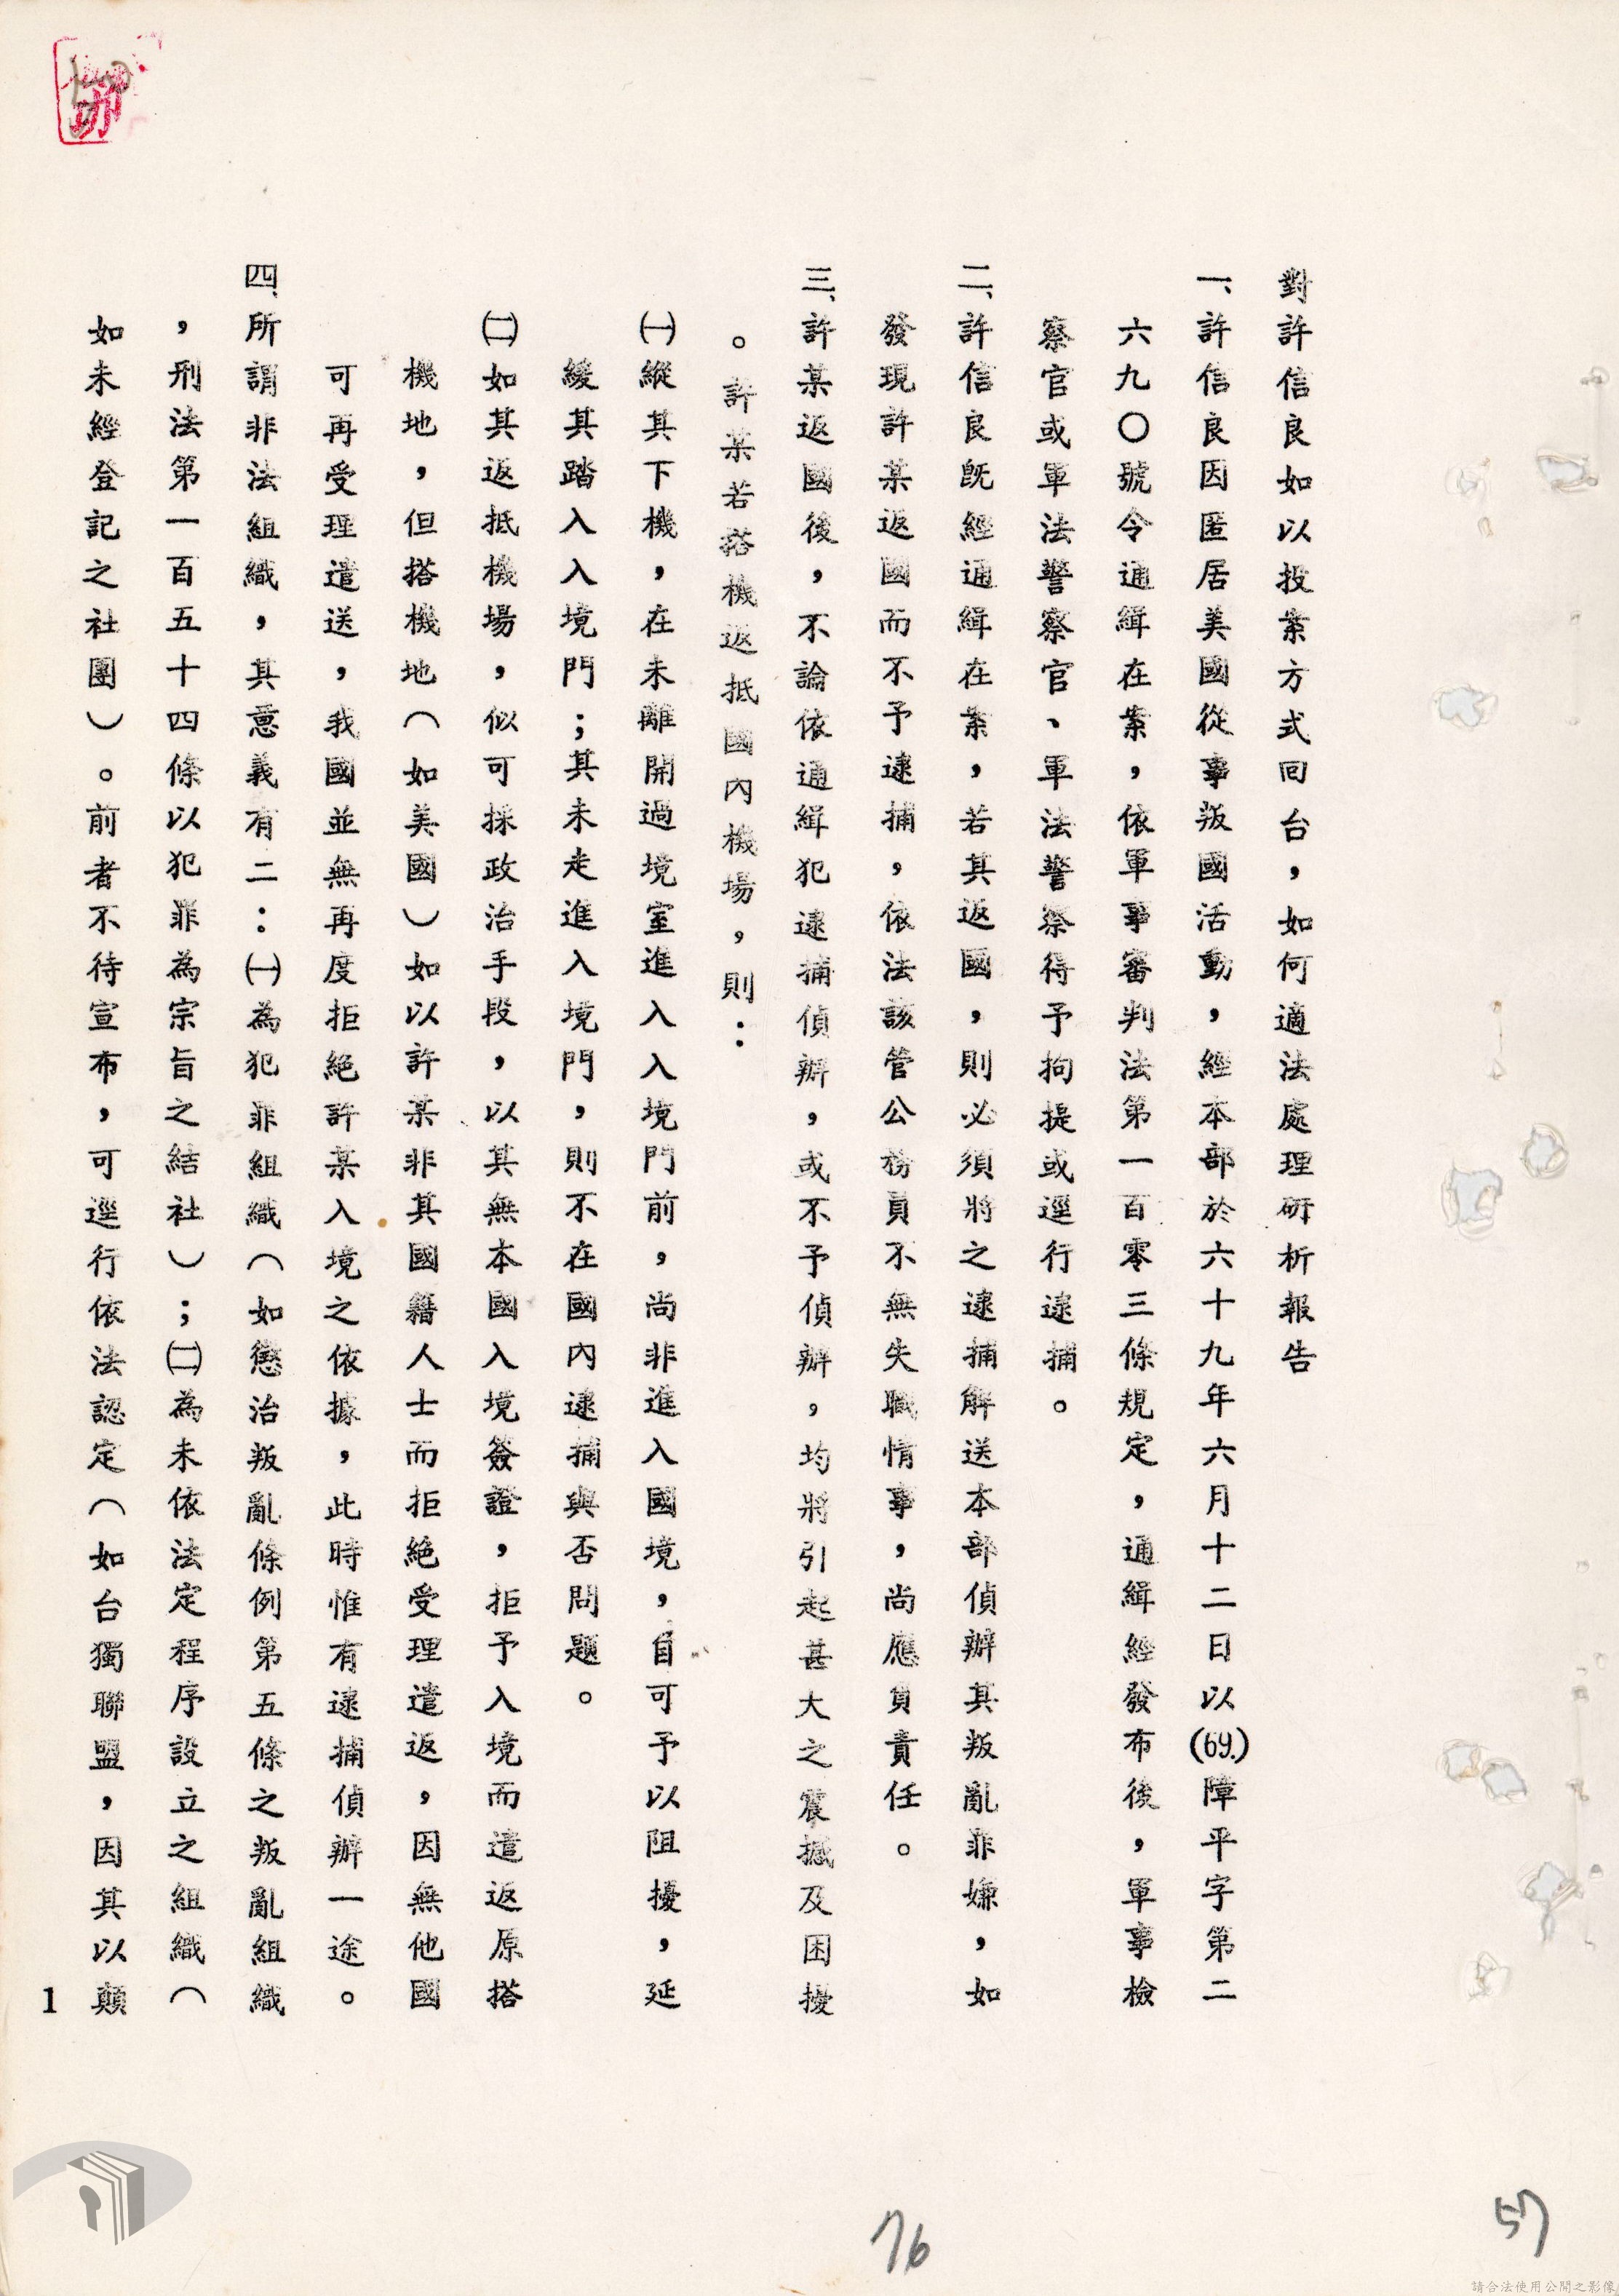 對許信良如以投案方式回台，如何適法處理研析報告
一、許信良因匿居美國從事叛國活動，經本部於六十九年六月十二日以(69.)障平字第二
六九〇號令通緝在案，依軍事審判法第一百零三條規定，通緝經發布後，軍事檢
察官或軍法警察官、軍法警察得予拘提或逕行逮捕。
二、許信良既經通緝在案，若其返國，則必須將之逮捕解送本部偵辦其叛亂罪嫌，如
發現許某返國而不予逮捕，依法該管公務員不無失職情事，尚應負責任。
三、許某返國後，不論依通緝犯逮捕偵辦，或不予偵辦，均將引起甚大之震撼及困擾
。許某若搭機返抵國內機場，則：
㈠縱其下機，在未離開過境室進入入境門前，尚非進入國境，自可予以阻擾，延
緩其踏入入境門；其未走進入境門，則不在國內逮捕與否問題。
㈡如其返抵機場，似可採政治手段，以其無本國入境簽證，拒予入境而遣返原搭
機地，但搭機地（如美國）如以許某非其國籍人士而拒絕受理遣返，因無他國
可再受理遣送，我國並無再度拒絕許某入境之依據，此時惟有逮捕偵辦一途。
四、所謂非法組織，其意義有二：㈠為犯罪組織（如懲治叛亂條例第五條之叛亂組織
，刑法第一百五十四條以犯罪為宗旨之結社）；㈡為未依法定程序設立之組織（
如未經登記之社團）。前者不待宣布，可逕行依法認定（如台獨聯盟，因其以顛
1
76
57
請合法使用公開之影像